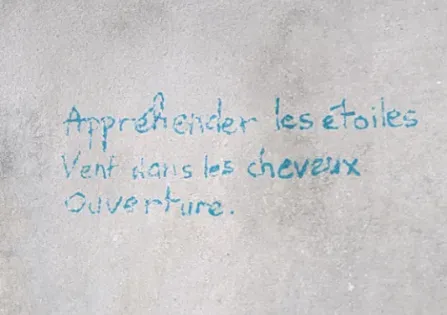 Appréhender les étoiles
Vent dans les cheveux
Ouverture.